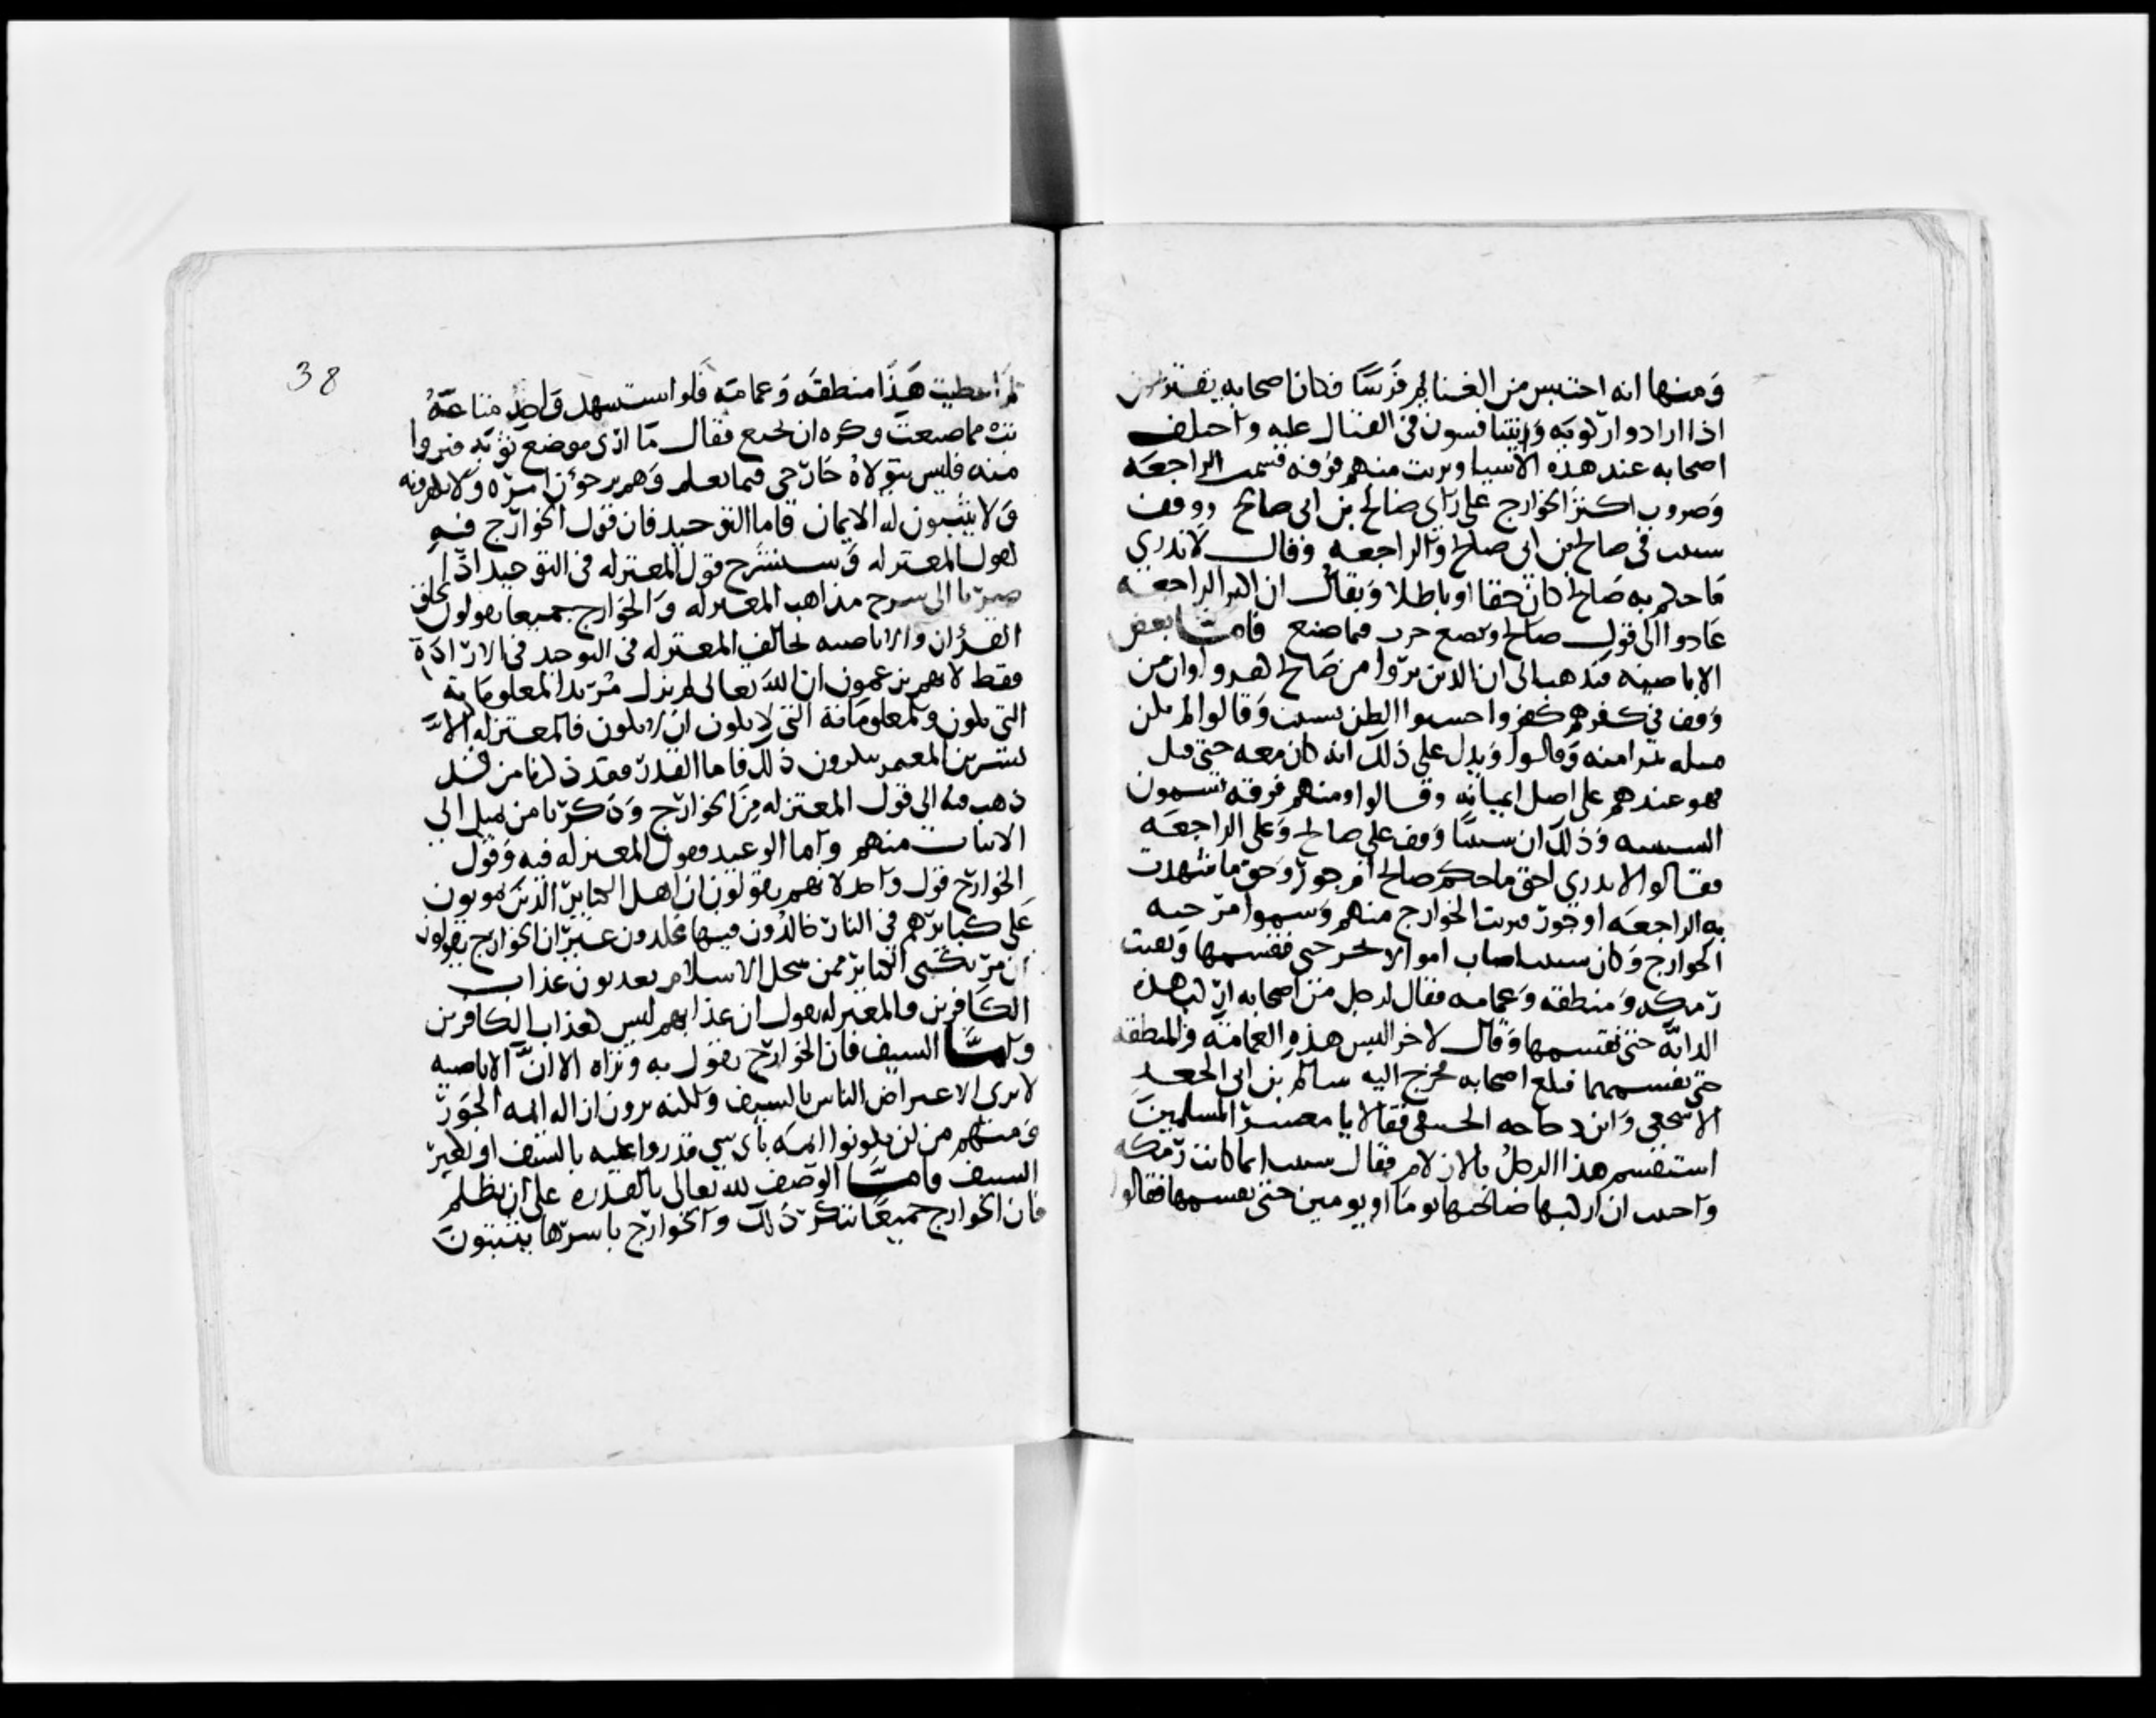 ومنها انه احتبس من الغنايم فرسا فكان اصحابه يقترعون
اذا ارادوا ركوبه ويتنافسون في القتال عليه واختلف
اصحابه عند هذه الاشيا وبريت منهم فرقة فسميت الراجعة
وصوب اكثر الخوارج على راي صالح بن ابي صالح ووقف
شبيب في صالح بن ابي صالح والراجعة وقال لا ندري
ما حكم به صالح كان حقا او باطلا ويقال ان اكثر الراجعة
عادوا الى قول صالح وبصنع فما صنع فاما بعض
الاباضية فيذهب الى ان الذين بروا من صالح كفروا وان من
وقف في كفرهم كفر واحسنوا الظن بشبيب وقالوا لم يكن
مثله يبرا منه وقالوا ويدل على ذلك انه كان معه حتى قتل
فهو عندهم على اصل ايمانه وقالوا ومنهم فرقة تسمون
الشبيبية وذلك ان شبيبا وقف على صالح وعلى الراجعة
فقالوا لا ندري احق ما حكم صالح ام جور وحق ما شهدت
به الراجعة او جور فبريت الخوارج منهم وسموا مرجية
الخوارج وكان شبيب اصاب اموالا فقسمها وبقيت
رمكة ومنطقة وعمامة فقال لرجل من اصحابه اركب هذه
الدابة حتى نقسمها وقال لاخر البس هذه العمامة والمنطقة
حتى نقسمها فبلغ اصحابه فخرج اليه سالم بن ابي الجعد
الاشجعي وابن دجاجة الحنفي فقالا يا معشر المسلمين
استقسم هذا الرجل بالازلام فقال شبيب انما كانت رمكة
واحببت ان اركبها صاحبها يوما او يومين حتى نقسمها فقالوا
38
لم اعطيت هذا منطقة وعمامة فلو استشهد واخذ متاعه
تب مما صنعت وكره ان يخنع فقال ما ارى موضع توبة فبروا
منه فليس يتولاه خارجي فيما نعلم وهم يرجون امره ولا يكفرونه
ولا يثبتون له الايمان فاما التوحيد فان قول الخوارج فيه
كقول المعتزلة وسنشرح قول المعتزلة في التوحيد اذا
صرنا الى شرح مذاهب المعتزلة والخوارج جميعا يقولون بخلق
القران والاباضية تخالف المعتزلة في التوحيد في الارادة
فقط لانهم يزعمون ان الله تعالى لم يزل مريدا لمعلوماته
التي تكون ولمعلوماته التي لا تكون ان لا تكون والمعتزلة الا
بشر بن المعتمر ينكرون ذلك فاما القدر فقد ذكرنا من
ذهب منه الى قول المعتزلة من الخوارج وذكرنا من يميل الى
الاثبات منهم واما الوعيد فقول المعتزلة فيه وقول
الخوارج قول واحد لانهم يقولون ان اهل الكباير الذين يموتون
على كبايرهم في النار خالدون فيها مخلدون غير ان الخوارج يقولون
ان مرتكبي الكباير ممن ينتحل الاسلام يعذبون عذاب
الكافرين والمعتزلة يقول ان عذابهم ليس كعذاب الكافرين
واما السيف فان الخوارج يقول به وتراه الا ان الاباضية
لا ترى الاعتراض الناس بالسيف ولكنه يرون ازالة ايمة الجور
ومنعهم من ان يكونوا ايمة باي شي قدروا عليه بالسيف او بغير
السيف فاما الوصف لله تعالى بالقدرة على ان يظلم
فان الخوارج جميعا تنكر ذلك والخوارج باسرها يثبتون